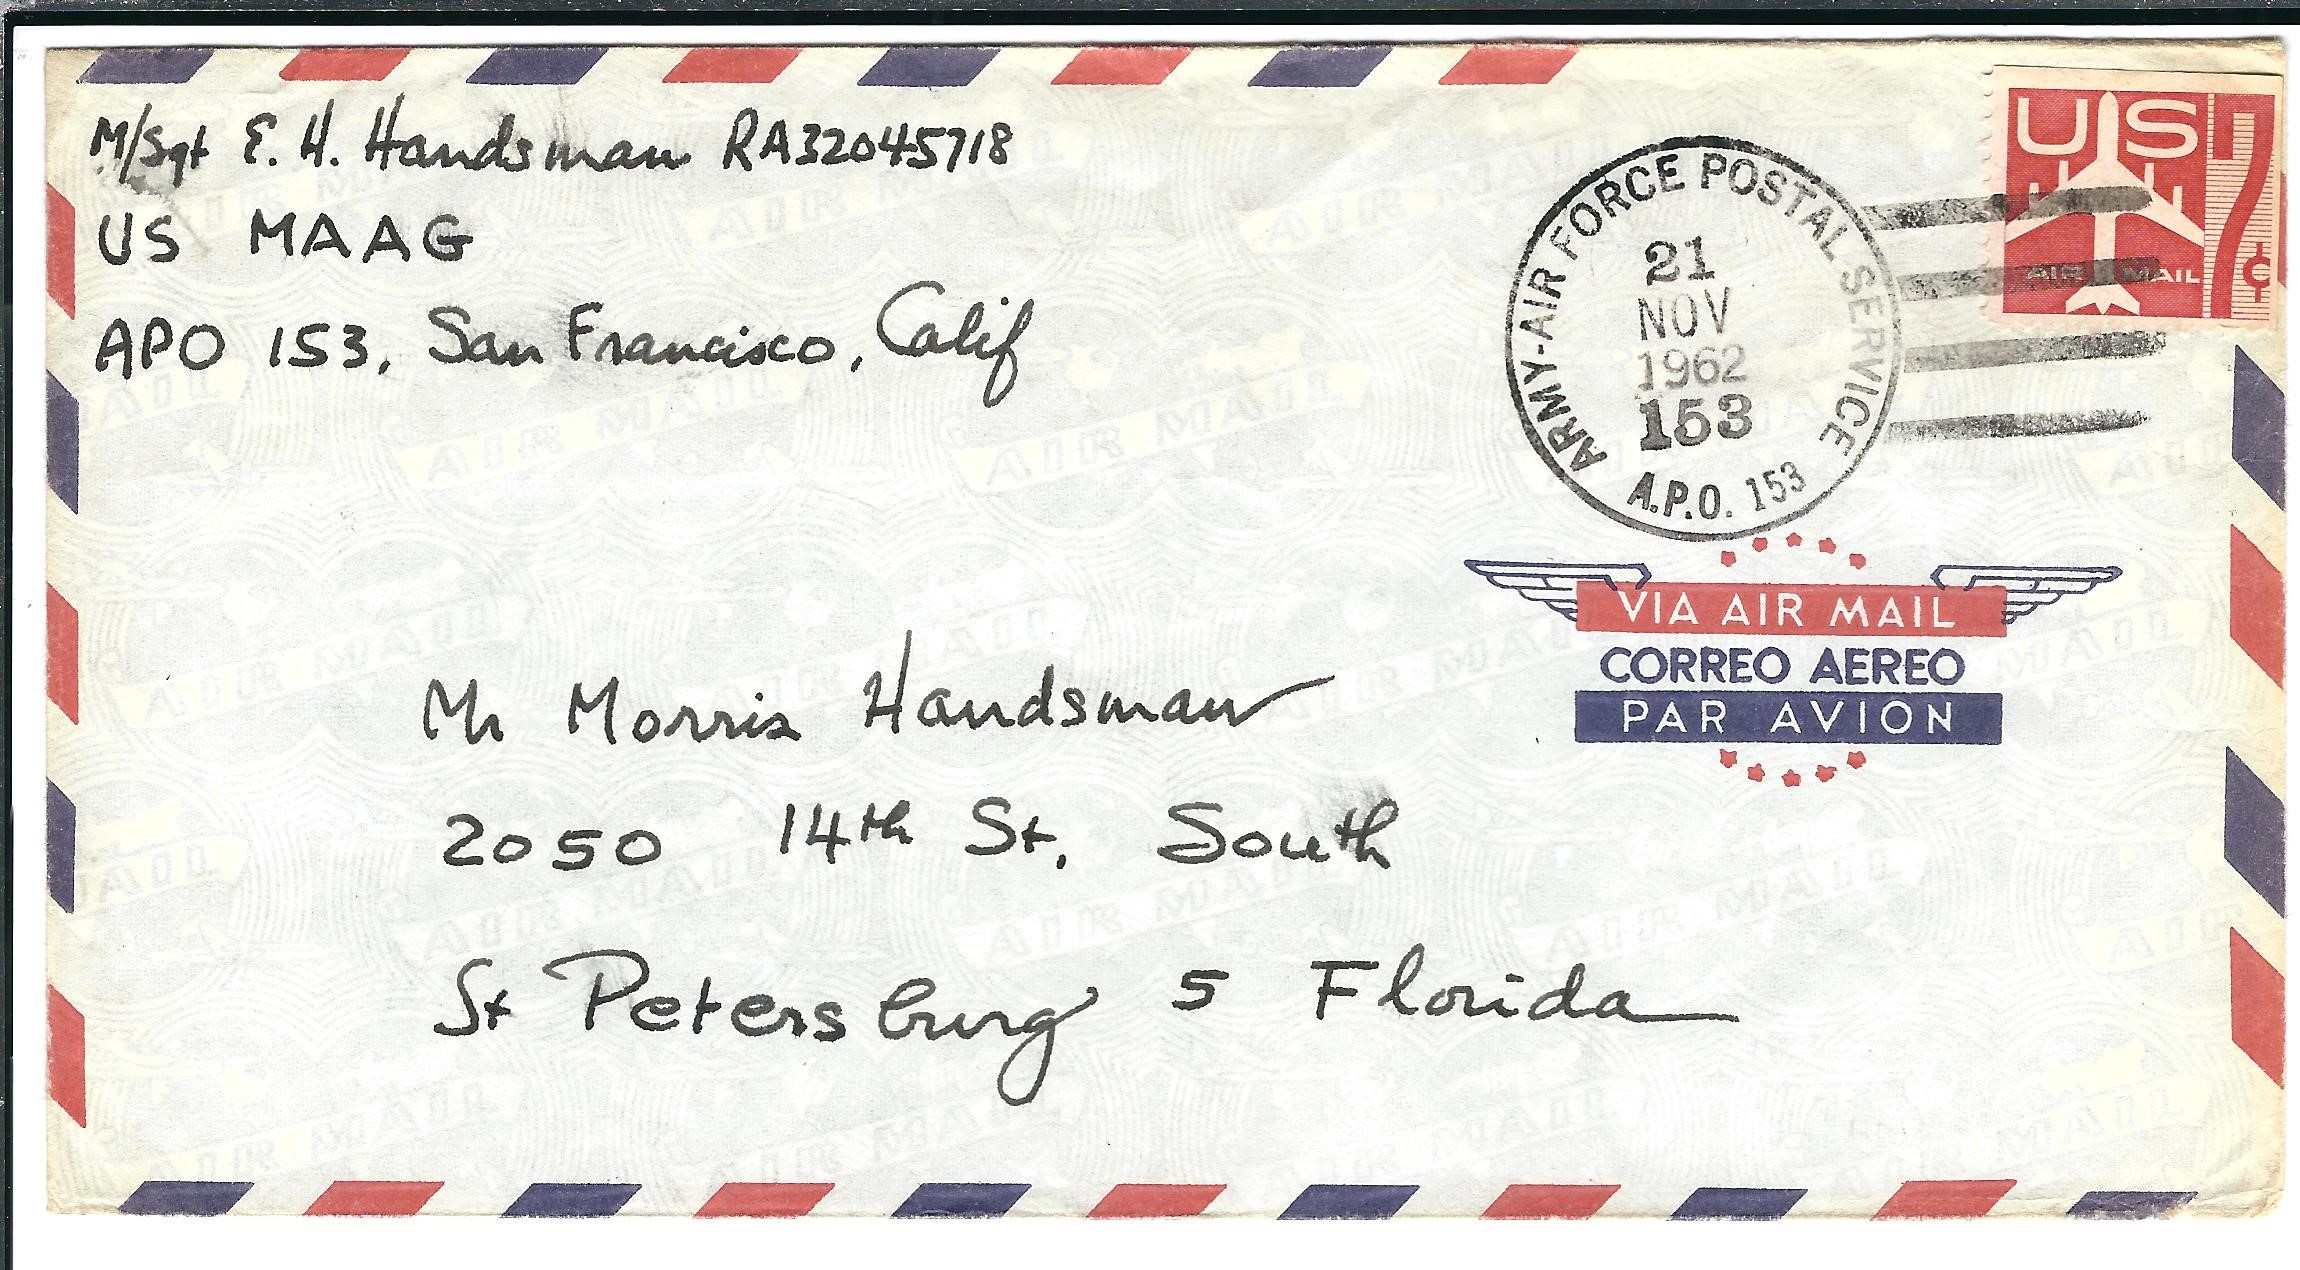 M/Sgt E. H. Handsman RA32045718
US MAAG
APO 153, San Francisco, Calif
ARMY-AIR FORCE POSTAL SERVICE
21
NOV
1962
153
A.P.O. 153
US 7¢
AIR MAIL
VIA AIR MAIL
CORREO AEREO
PAR AVION
Mr Morris Handsman
2050 14th St. South
St Petersburg 5 Florida